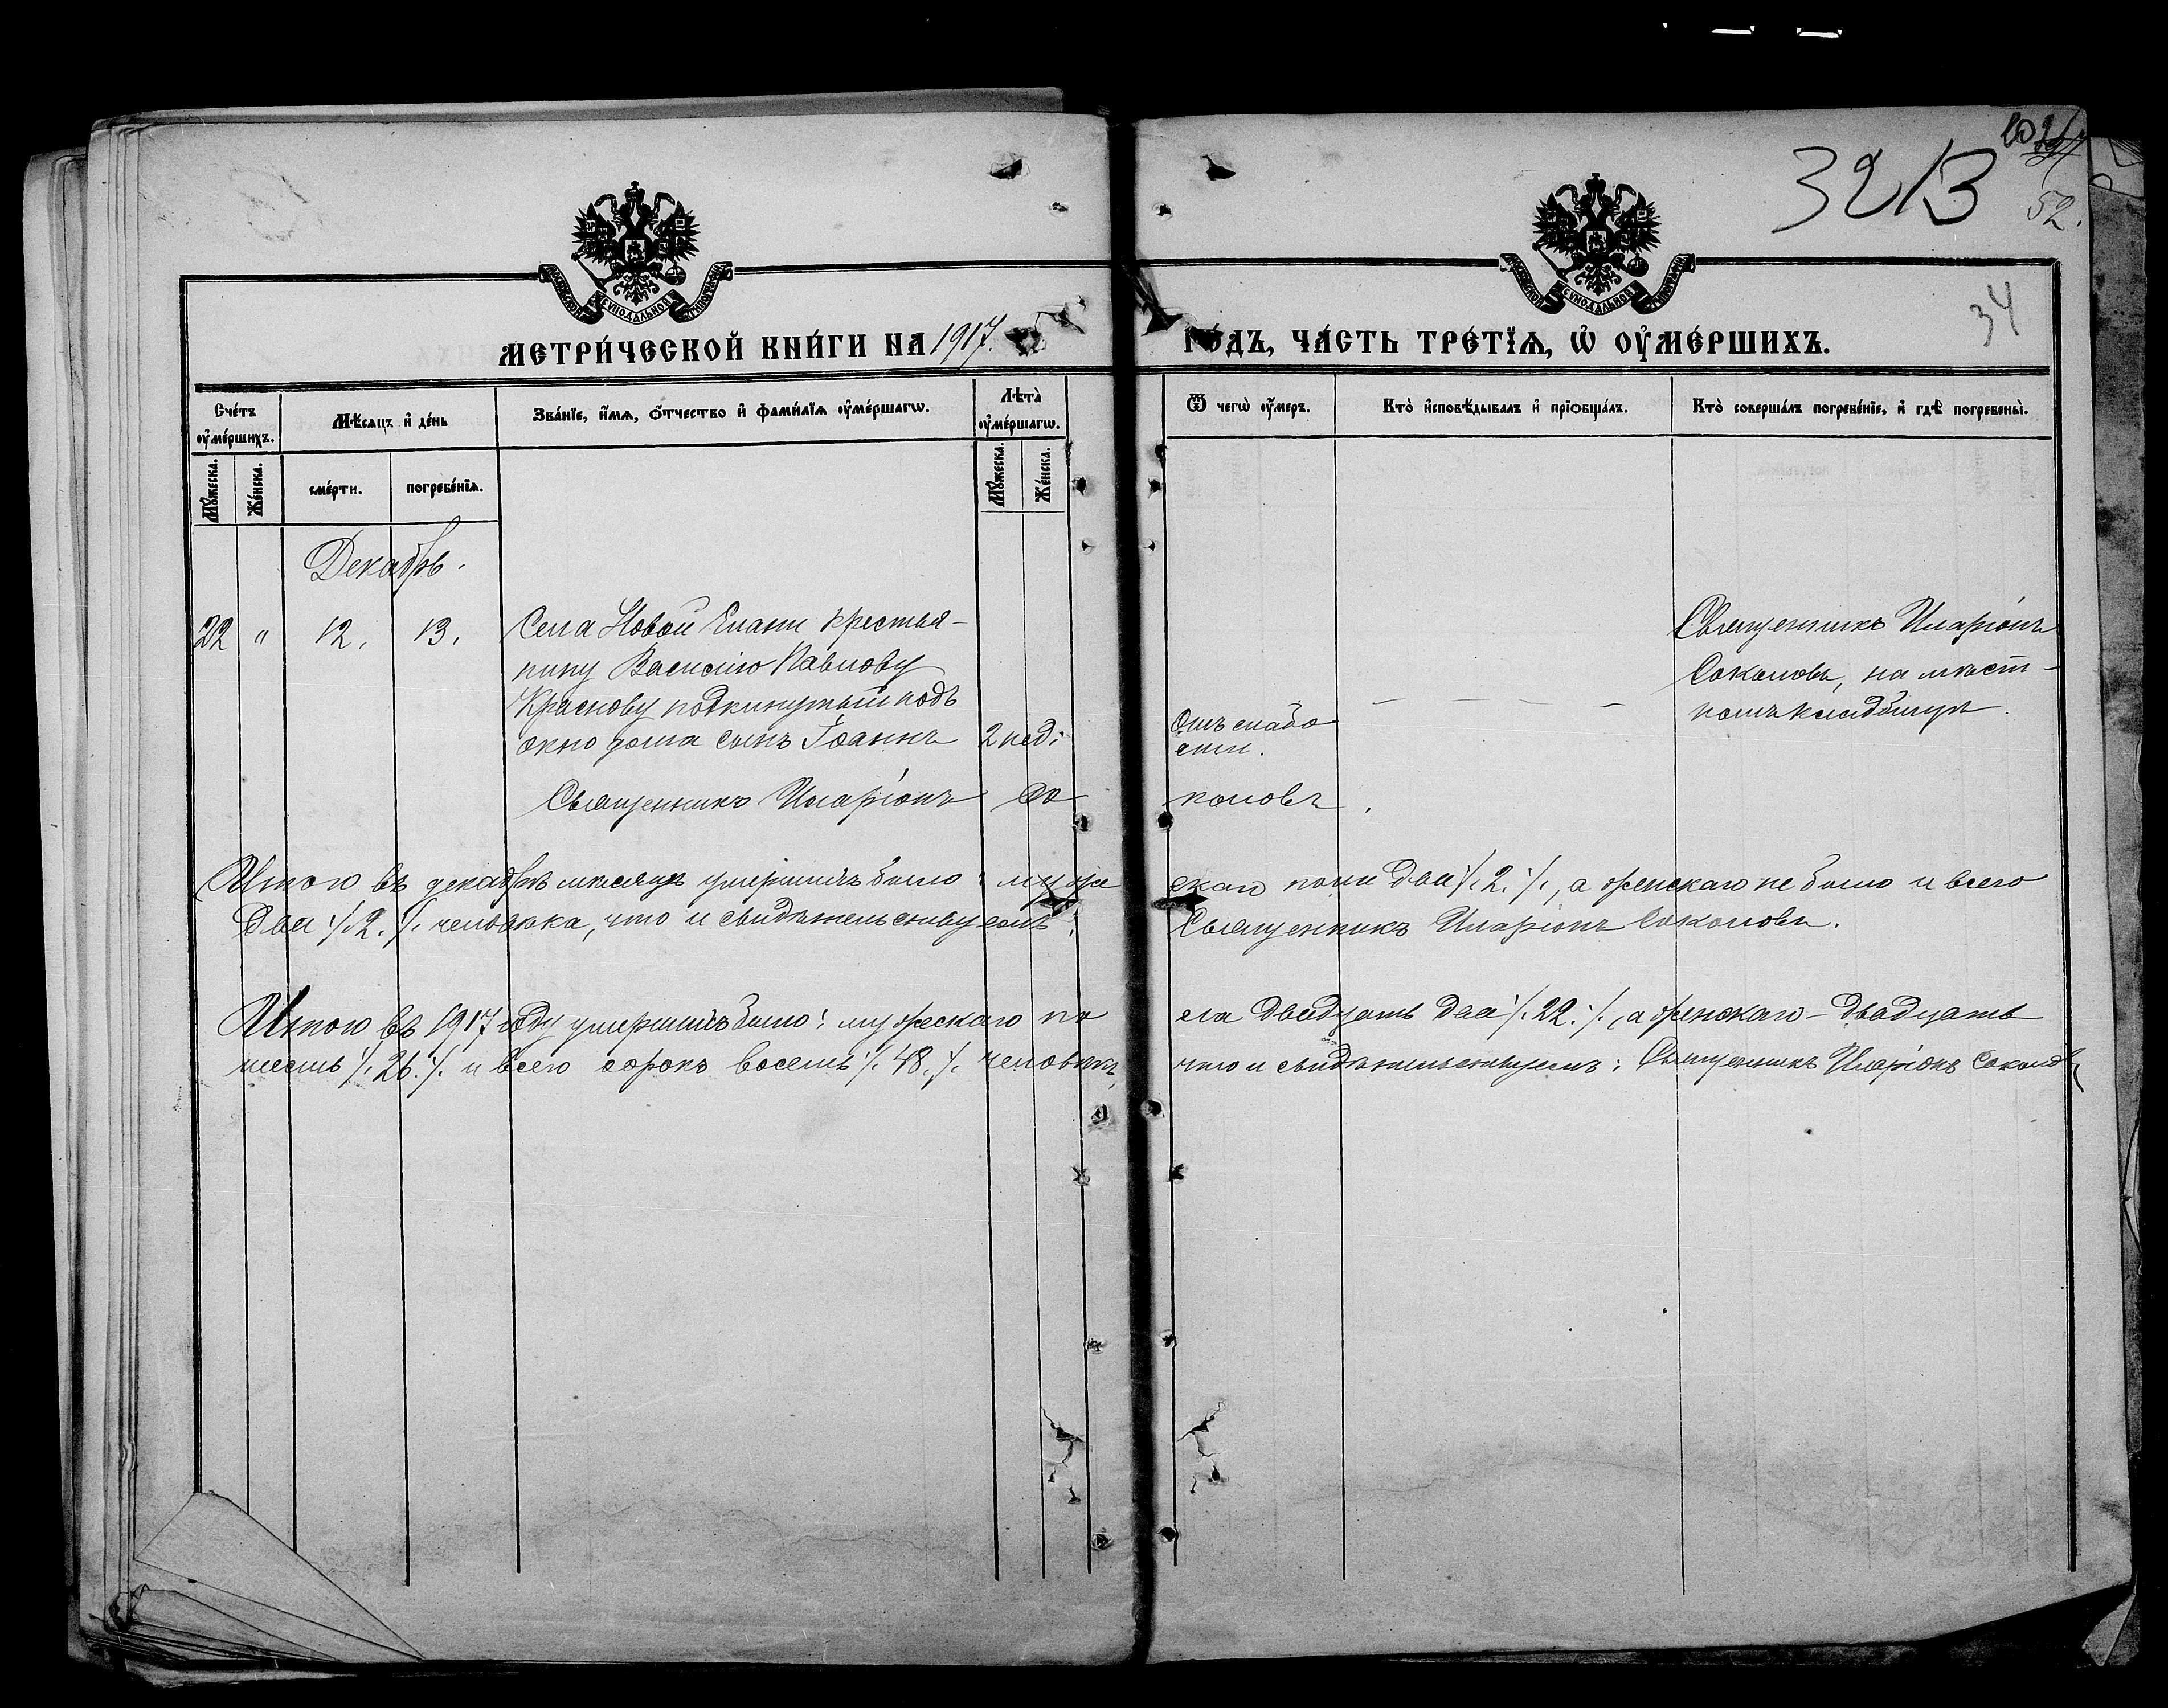 3213
52.
34
МОСКОВСКОЙ СѴНОДАЛЬНОЙ ТИПОГРАФІИ
МОСКОВСКОЙ СѴНОДАЛЬНОЙ ТИПОГРАФІИ
МЕТРИ́ЧЕСКОЙ КНИ́ГИ НА 1917. ГО́ДЪ, ЧА́СТЬ ТРЕ́ТЇѦ, Ѡ҆ ОУ҆МЕ́РШИХЪ.
Сче́тъ оу҆ме́ршихъ.
Мꙋ́жеска.
Же́нска.
Мѣ́сяцъ и҆ де́нь
сме́рти.
погребе́нїѧ.
Зва́нїе, и҆́мѧ, ѻ҆́тчество и҆ фами́лїѧ оу҆ме́ршагѡ.
Лѣ́та оу҆ме́ршагѡ.
Мꙋ́жеска.
Же́нска.
Ѿ чегѡ̀ оу҆́меръ.
Кто̀ и҆сповѣ́дывалъ и҆ прїѡбща́лъ.
Кто̀ соверша́лъ погребе́нїе, и҆ гдѣ̀ погребены̀.
Декабрь.
22 " 12. 13. Села Новой Елани крестья-
нину Василію Павлову
Краснову подкинутый подъ
окно дома сынъ Іоаннъ 2 нед:
Отъ слабо
сти.
Священникъ Иларіонъ
Соколовъ, на мѣст-
номъ кладбищѣ.
Священникъ Иларіонъ Со коловъ.
Итого въ декабрѣ мѣсяцѣ умершихъ было: муже скаго пола два /.2./., а женскаго не было и всего
два /.2./. человѣка, что и свидѣтельствуемъ: Священникъ Иларіонъ Соколовъ.
Итого въ 1917 году умершихъ было: мужескаго по ла двадцать два /.22./., а женскаго - двадцать
шесть /.26./. и всего сорокъ восемь /.48./. человѣкъ, что и свидѣтельствуемъ: Священникъ Иларіонъ Соколовъ